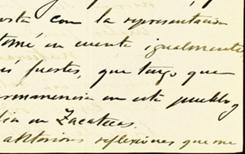 esta con la representación
tomé en cuenta igualmente,
és fuertes, que tengo que
permanencia en este pueblo y
lia en Zacatecas.
reflexiones que me